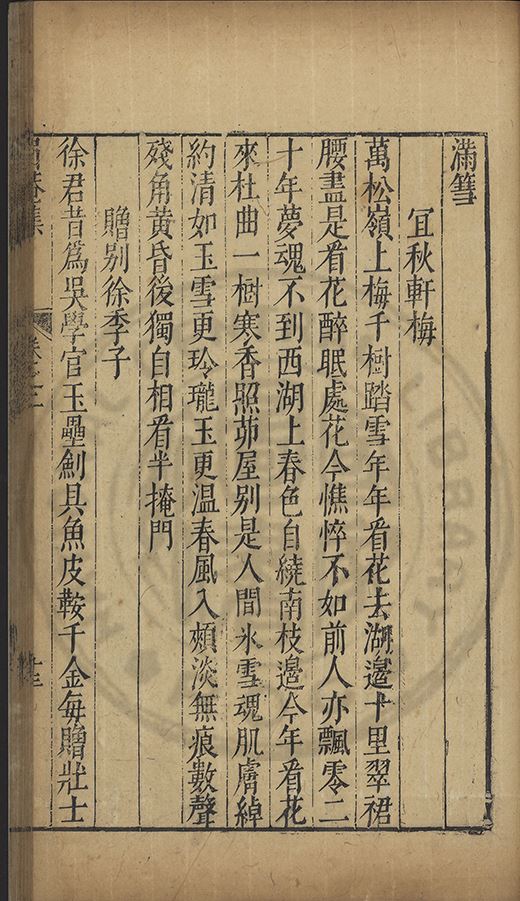 滿篲
宜秋軒梅
萬松嶺上梅千樹踏雪年年看花去湖邉十里翠裙
腰盡是看花醉眠處花今憔悴不如前人亦飄零二
十年夢魂不到西湖上春色自繞南枝邉今年看花
來杜曲一樹寒香照茆屋别是人間氷雪魂肌膚綽
約清如玉雪更玲瓏玉更温春風入頰淡無痕數聲
殘角黄昏後獨自相看半掩門
贈别徐季子
徐君昔爲吳學官玉壘劎具魚皮鞍千金每贈壯士